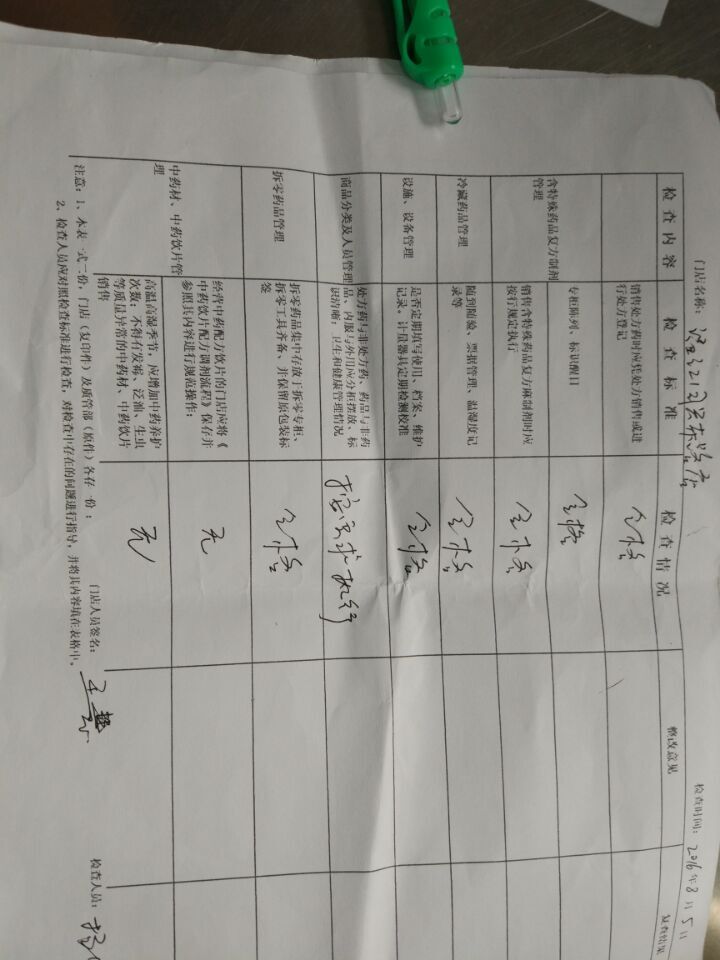 门店名称：
检查时间：2016年8月5日
检查内容 检查标准 检查情况 整改意见 复查结果
销售处方药时应凭处方销售或进
行处方登记
合格
含特殊药品复方制剂
管理
专柜陈列、标识醒目
合格
销售含特殊药品复方麻制剂时应
按行规定执行
合格
冷藏药品管理
随到随验、票据管理、温湿度记
录等
合格
设施、设备管理
是否定期填写使用、档案、维护
记录。计量器具定期检测校准
合格
商品分类及人员管理
处方药与非处方药、药品与非药
品、内服与外用应分柜摆放、标
识清晰；卫生和健康管理情况
按要求执行
拆零药品管理
拆零药品集中存放于拆零专柜、
拆零工具齐备、并保留原包装标
签
合格
中药材、中药饮片管
理
经营中药配方饮片的门店应将《
中药饮片配方调剂流程》保存并
参照其内容进行规范操作；
无
高温高湿季节，应增加中药养护
次数；不得有发霉、泛油、生虫
等质量异常的中药材、中药饮片
销售
无
门店人员签名：
检查人员：
注意：1、本表一式二份：门店（复印件）及质管部（原件）各存一份；
2、检查人员应对照检查标准进行检查，对检查中存在的问题进行指导，并将其内容填在表格中。